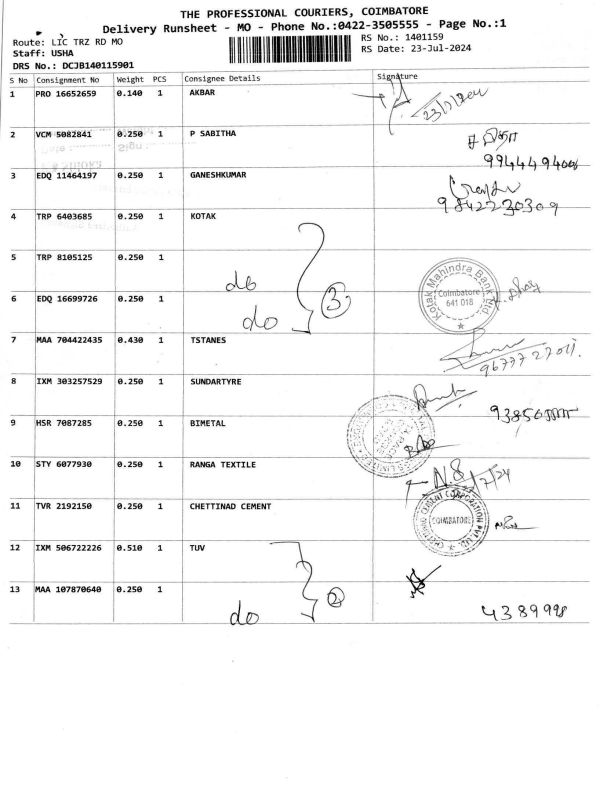 THE PROFESSIONAL COURIERS, COIMBATORE
Delivery Runsheet - MO - Phone No.:0422-3505555 - Page No.:1
Route: LIC TRZ RD MO
RS No.: 1401159
Staff: USHA
RS Date: 23-Jul-2024
DRS No.: DCJB140115901
S No Consignment No Weight PCS Consignee Details Signature
1 PRO 16652659 0.140 1 AKBAR
2 VCM 5082841 0.250 1 P SABITHA
3 EDQ 11464197 0.250 1 GANESHKUMAR
9842230309
4 TRP 6403685 0.250 1 KOTAK
5 TRP 8105125 0.250 1 do
Kotak Mahindra Bank Ltd.
Coimbatore
641 018
6 EDQ 16699726 0.250 1 do 3
7 MAA 704422435 0.430 1 TSTANES
8 IXM 303257529 0.250 1 SUNDARTYRE
9 HSR 7087285 0.250 1 BIMETAL
10 STY 6077930 0.250 1 RANGA TEXTILE
11 TVR 2192150 0.250 1 CHETTINAD CEMENT
CHETTINAD CEMENT CORPORATION PVT. LTD.
COIMBATORE
12 IXM 506722226 0.510 1 TUV
13 MAA 107870640 0.250 1 do 2
4389998